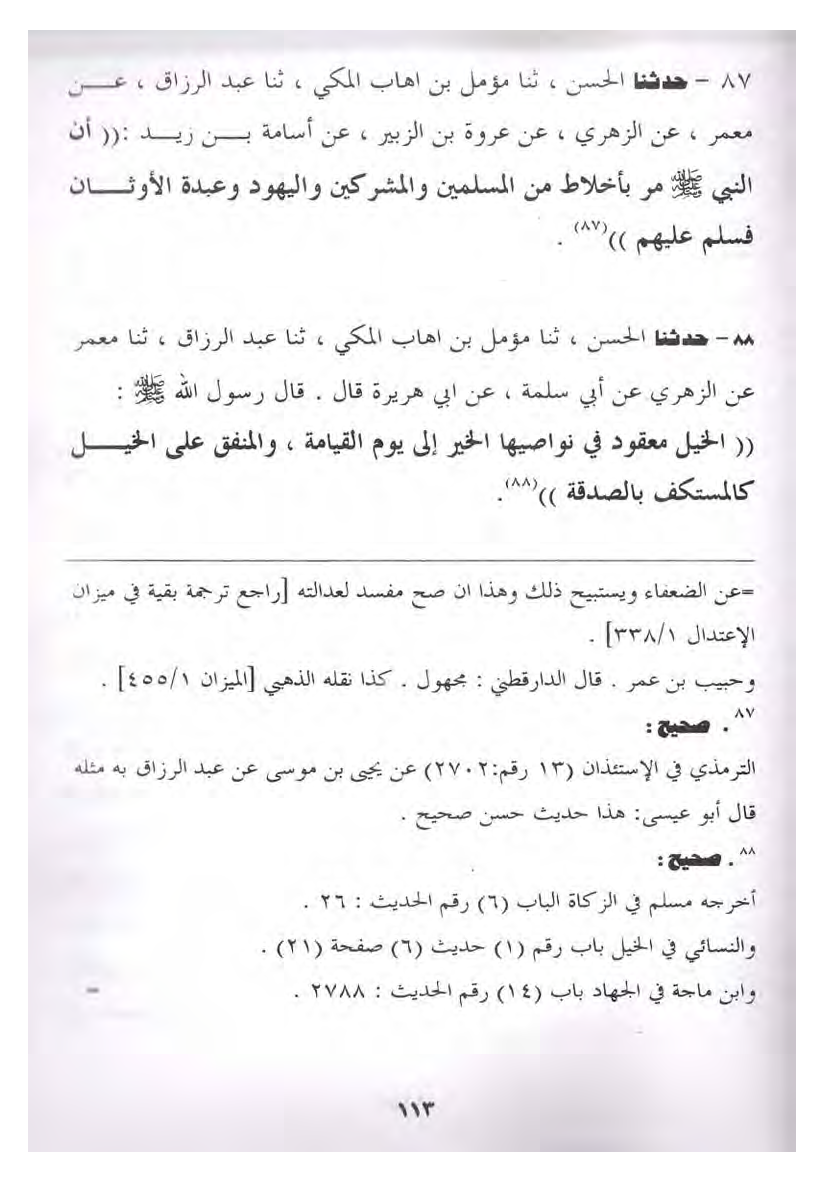 ٨٧ – حدثنا الحسن ، ثنا مؤمل بن اهاب المكي ، ثنا عبد الرزاق ، عن
معمر ، عن الزهري ، عن عروة بن الزبير ، عن أسامة بن زيد :(( أن
النبي ﷺ مر بأخلاط من المسلمين والمشركين واليهود وعبدة الأوثان
فسلم عليهم ))(٨٧) .
٨٨ – حدثنا الحسن ، ثنا مؤمل بن اهاب المكي ، ثنا عبد الرزاق ، ثنا معمر
عن الزهري عن أبي سلمة ، عن ابي هريرة قال . قال رسول الله ﷺ :
(( الخيل معقود في نواصيها الخير إلى يوم القيامة ، والمنفق على الخيل
كالمستكف بالصدقة ))(٨٨).
=عن الضعفاء ويستبيح ذلك وهذا ان صح مفسد لعدالته [راجع ترجمة بقية في ميزان
الإعتدال ٣٣٨/١] .
وحبيب بن عمر . قال الدارقطني : مجهول . كذا نقله الذهبي [الميزان ٤٥٥/١] .
٨٧ . صحيح :
الترمذي في الإستئذان (١٣ رقم:٢٧٠٢) عن يحيى بن موسى عن عبد الرزاق به مثله
قال أبو عيسى: هذا حديث حسن صحيح .
٨٨ . صحيح :
أخرجه مسلم في الزكاة الباب (٦) رقم الحديث : ٢٦ .
والنسائي في الخيل باب رقم (١) حديث (٦) صفحة (٢١) .
وابن ماجة في الجهاد باب (١٤) رقم الحديث : ٢٧٨٨ . =
١١٣